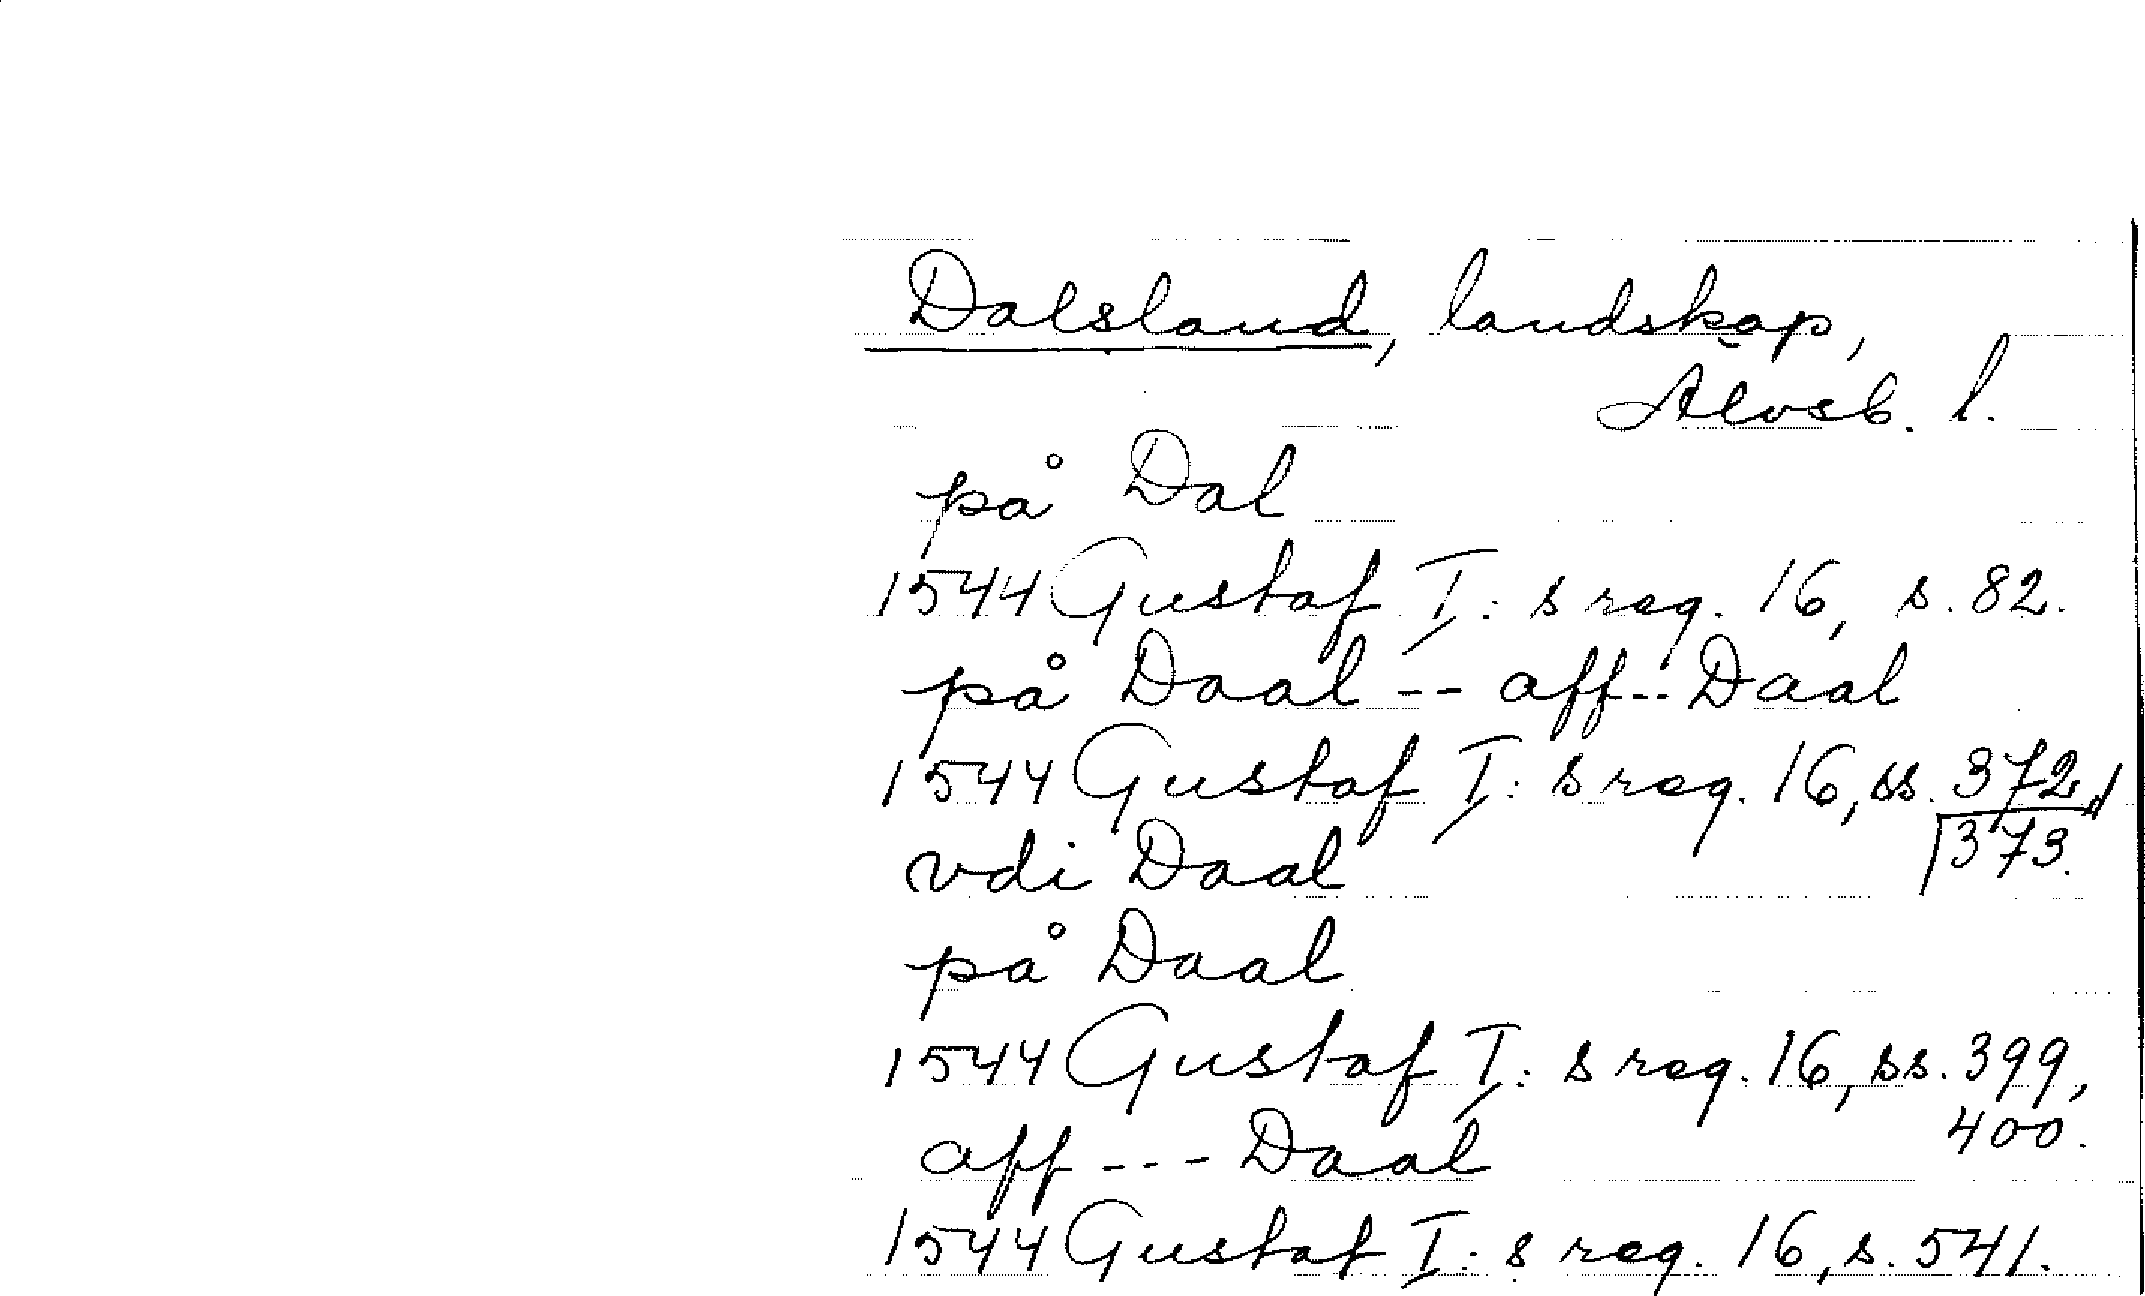 Dalsland, landskap,
Älvsb. l.
på Dal
1544 Gustaf I:s reg. 16, s. 82.
på Daal -- aff -- Daal
1544 Gustaf I:s reg. 16, ss. 372,
373.
vdi Daal
på Daal
1544 Gustaf I:s reg. 16, ss. 399,
400.
aff --- Daal
1544 Gustaf I:s reg. 16, s. 541.